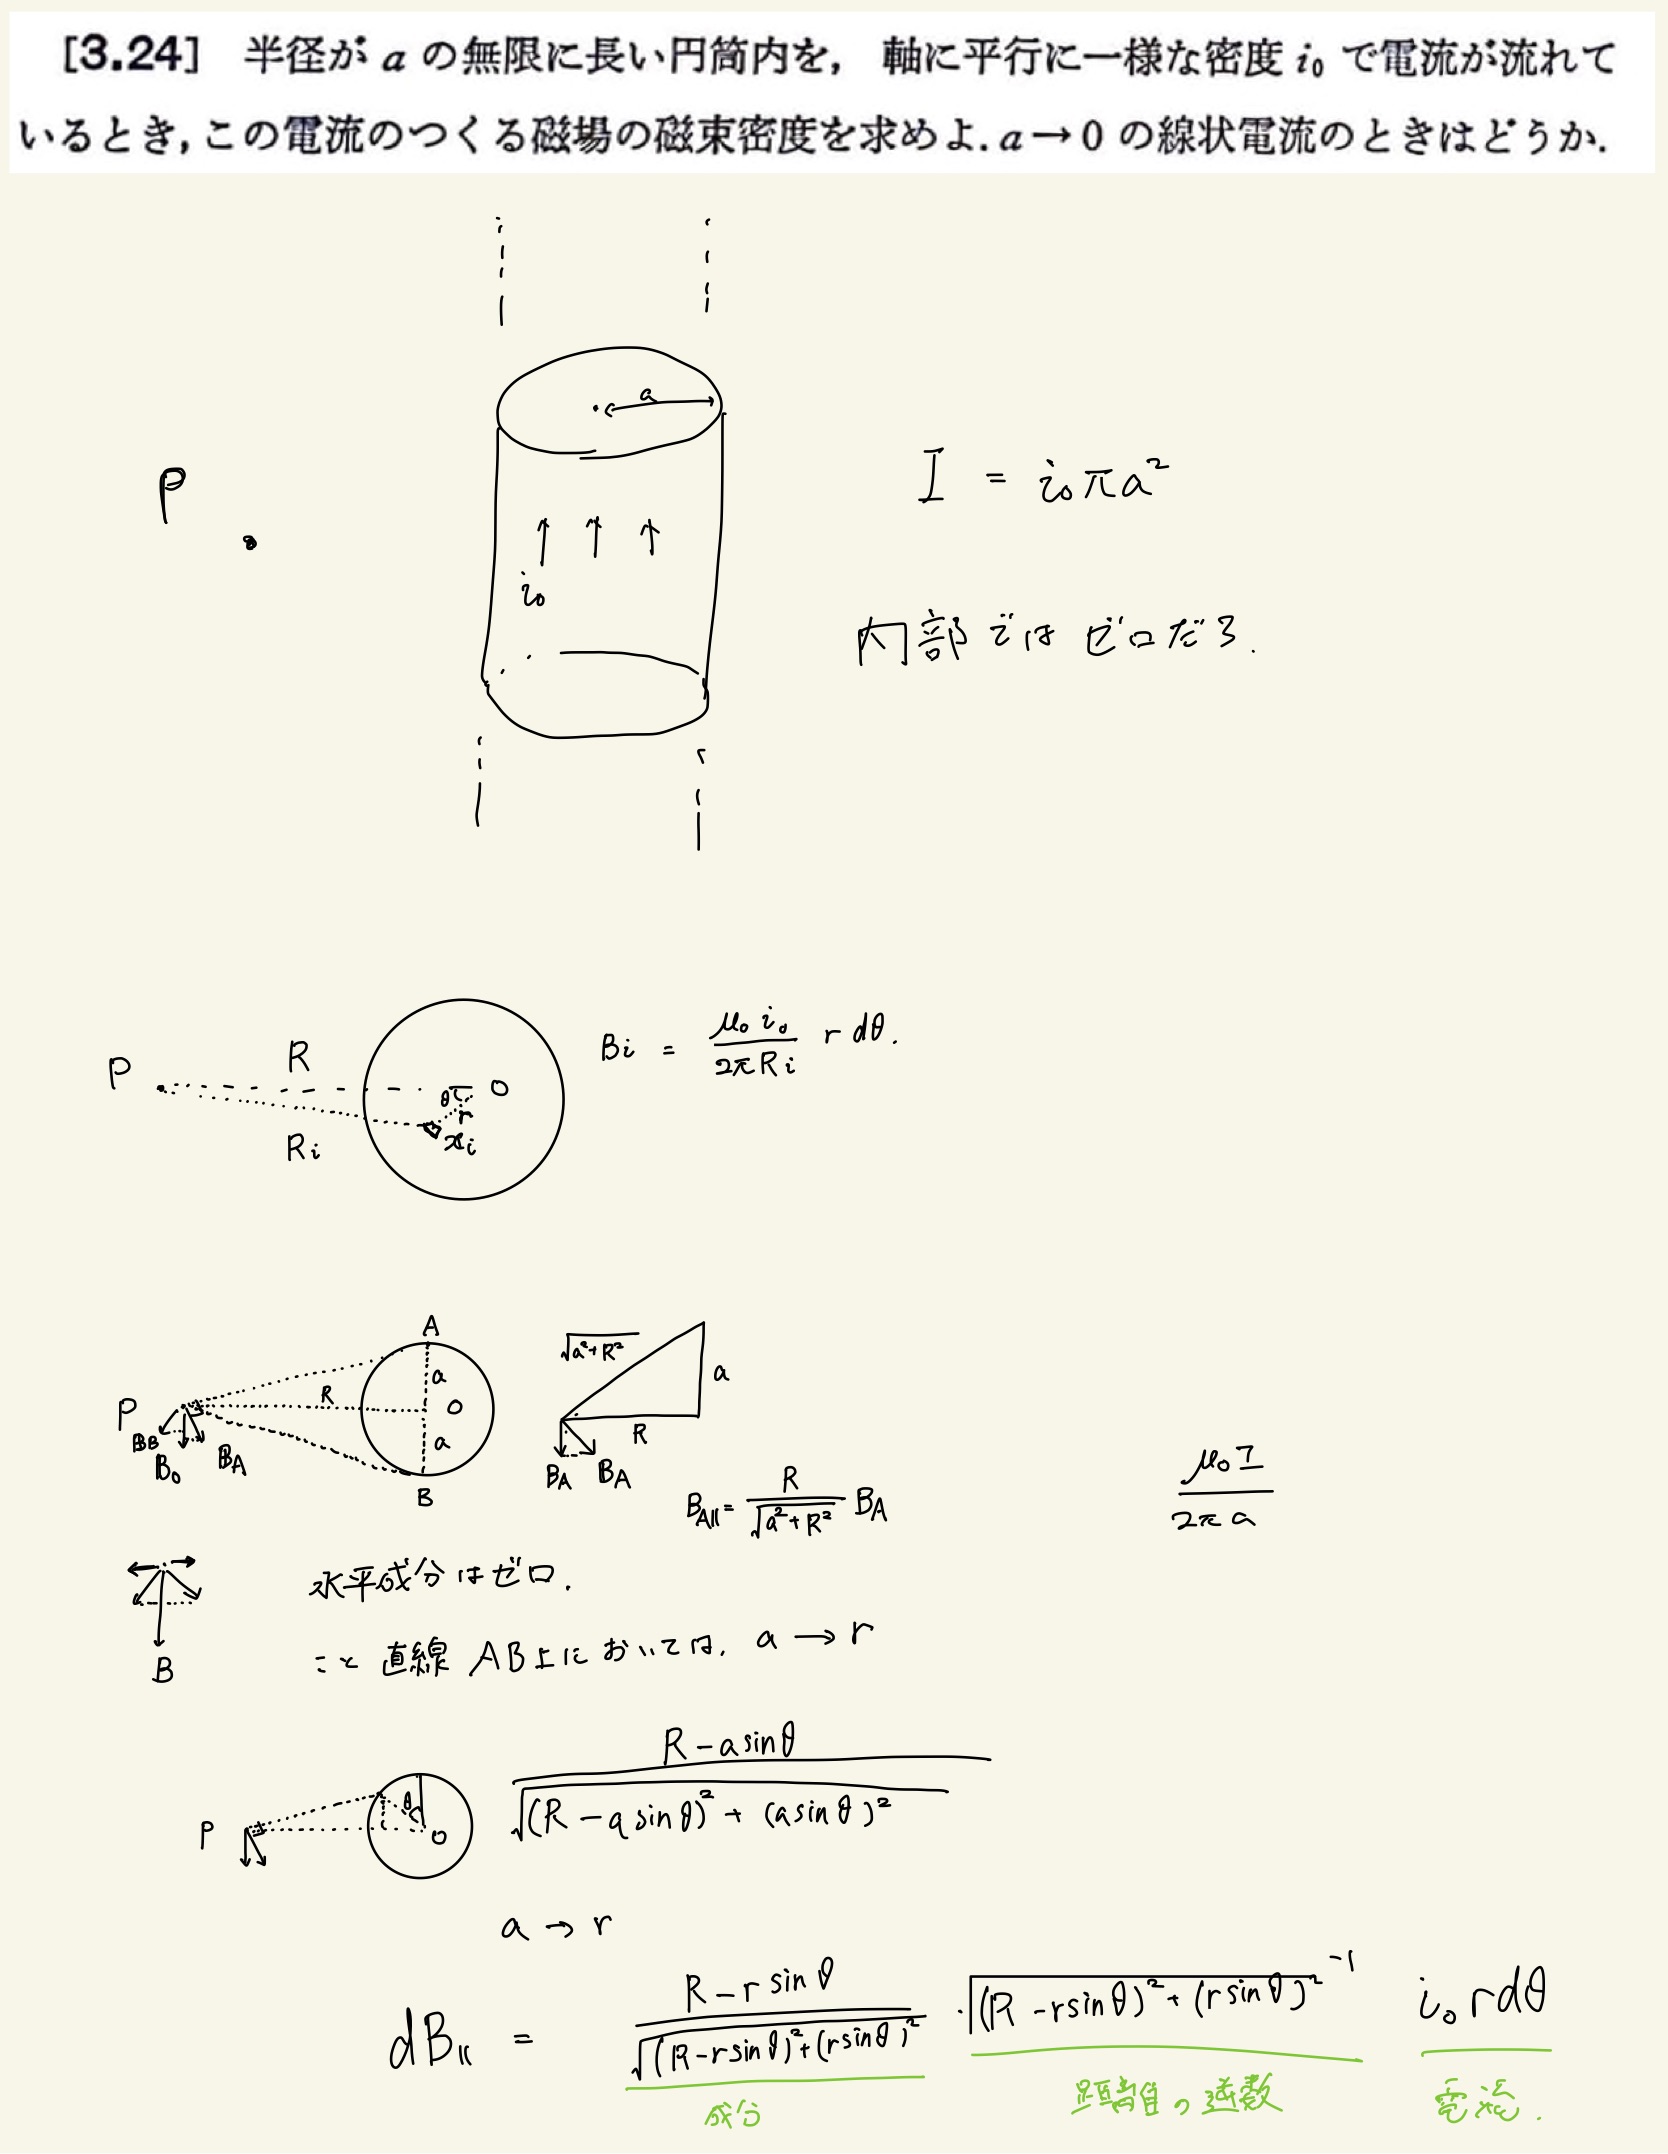 [3.24] 半径が a の無限に長い円筒内を, 軸に平行に一様な密度 i₀ で電流が流れて
いるとき,この電流のつくる磁場の磁束密度を求めよ. a→0 の線状電流のときはどうか.
a
P
I = i₀πa²
i₀
内部ではゼロだろ.
P R θ O
r
Ri xi
Bi = μ₀i₀/2πRi rdθ.
A
a
P R O
a
BB B₀ BA
B
√a²+R²
a
R
BA BA
BA∥= R/√a²+R² BA
μ₀I/2πa
水平成分はゼロ.
B
こと直線AB上においては, a → r
P θ O
R-asinθ/√(R-asinθ)²+(asinθ)²
a → r
dB∥ = R-rsinθ/√(R-rsinθ)²+(rsinθ)² ·√(R-rsinθ)²+(rsinθ)²⁻¹ i₀rdθ
成分 距離の逆数 電流.